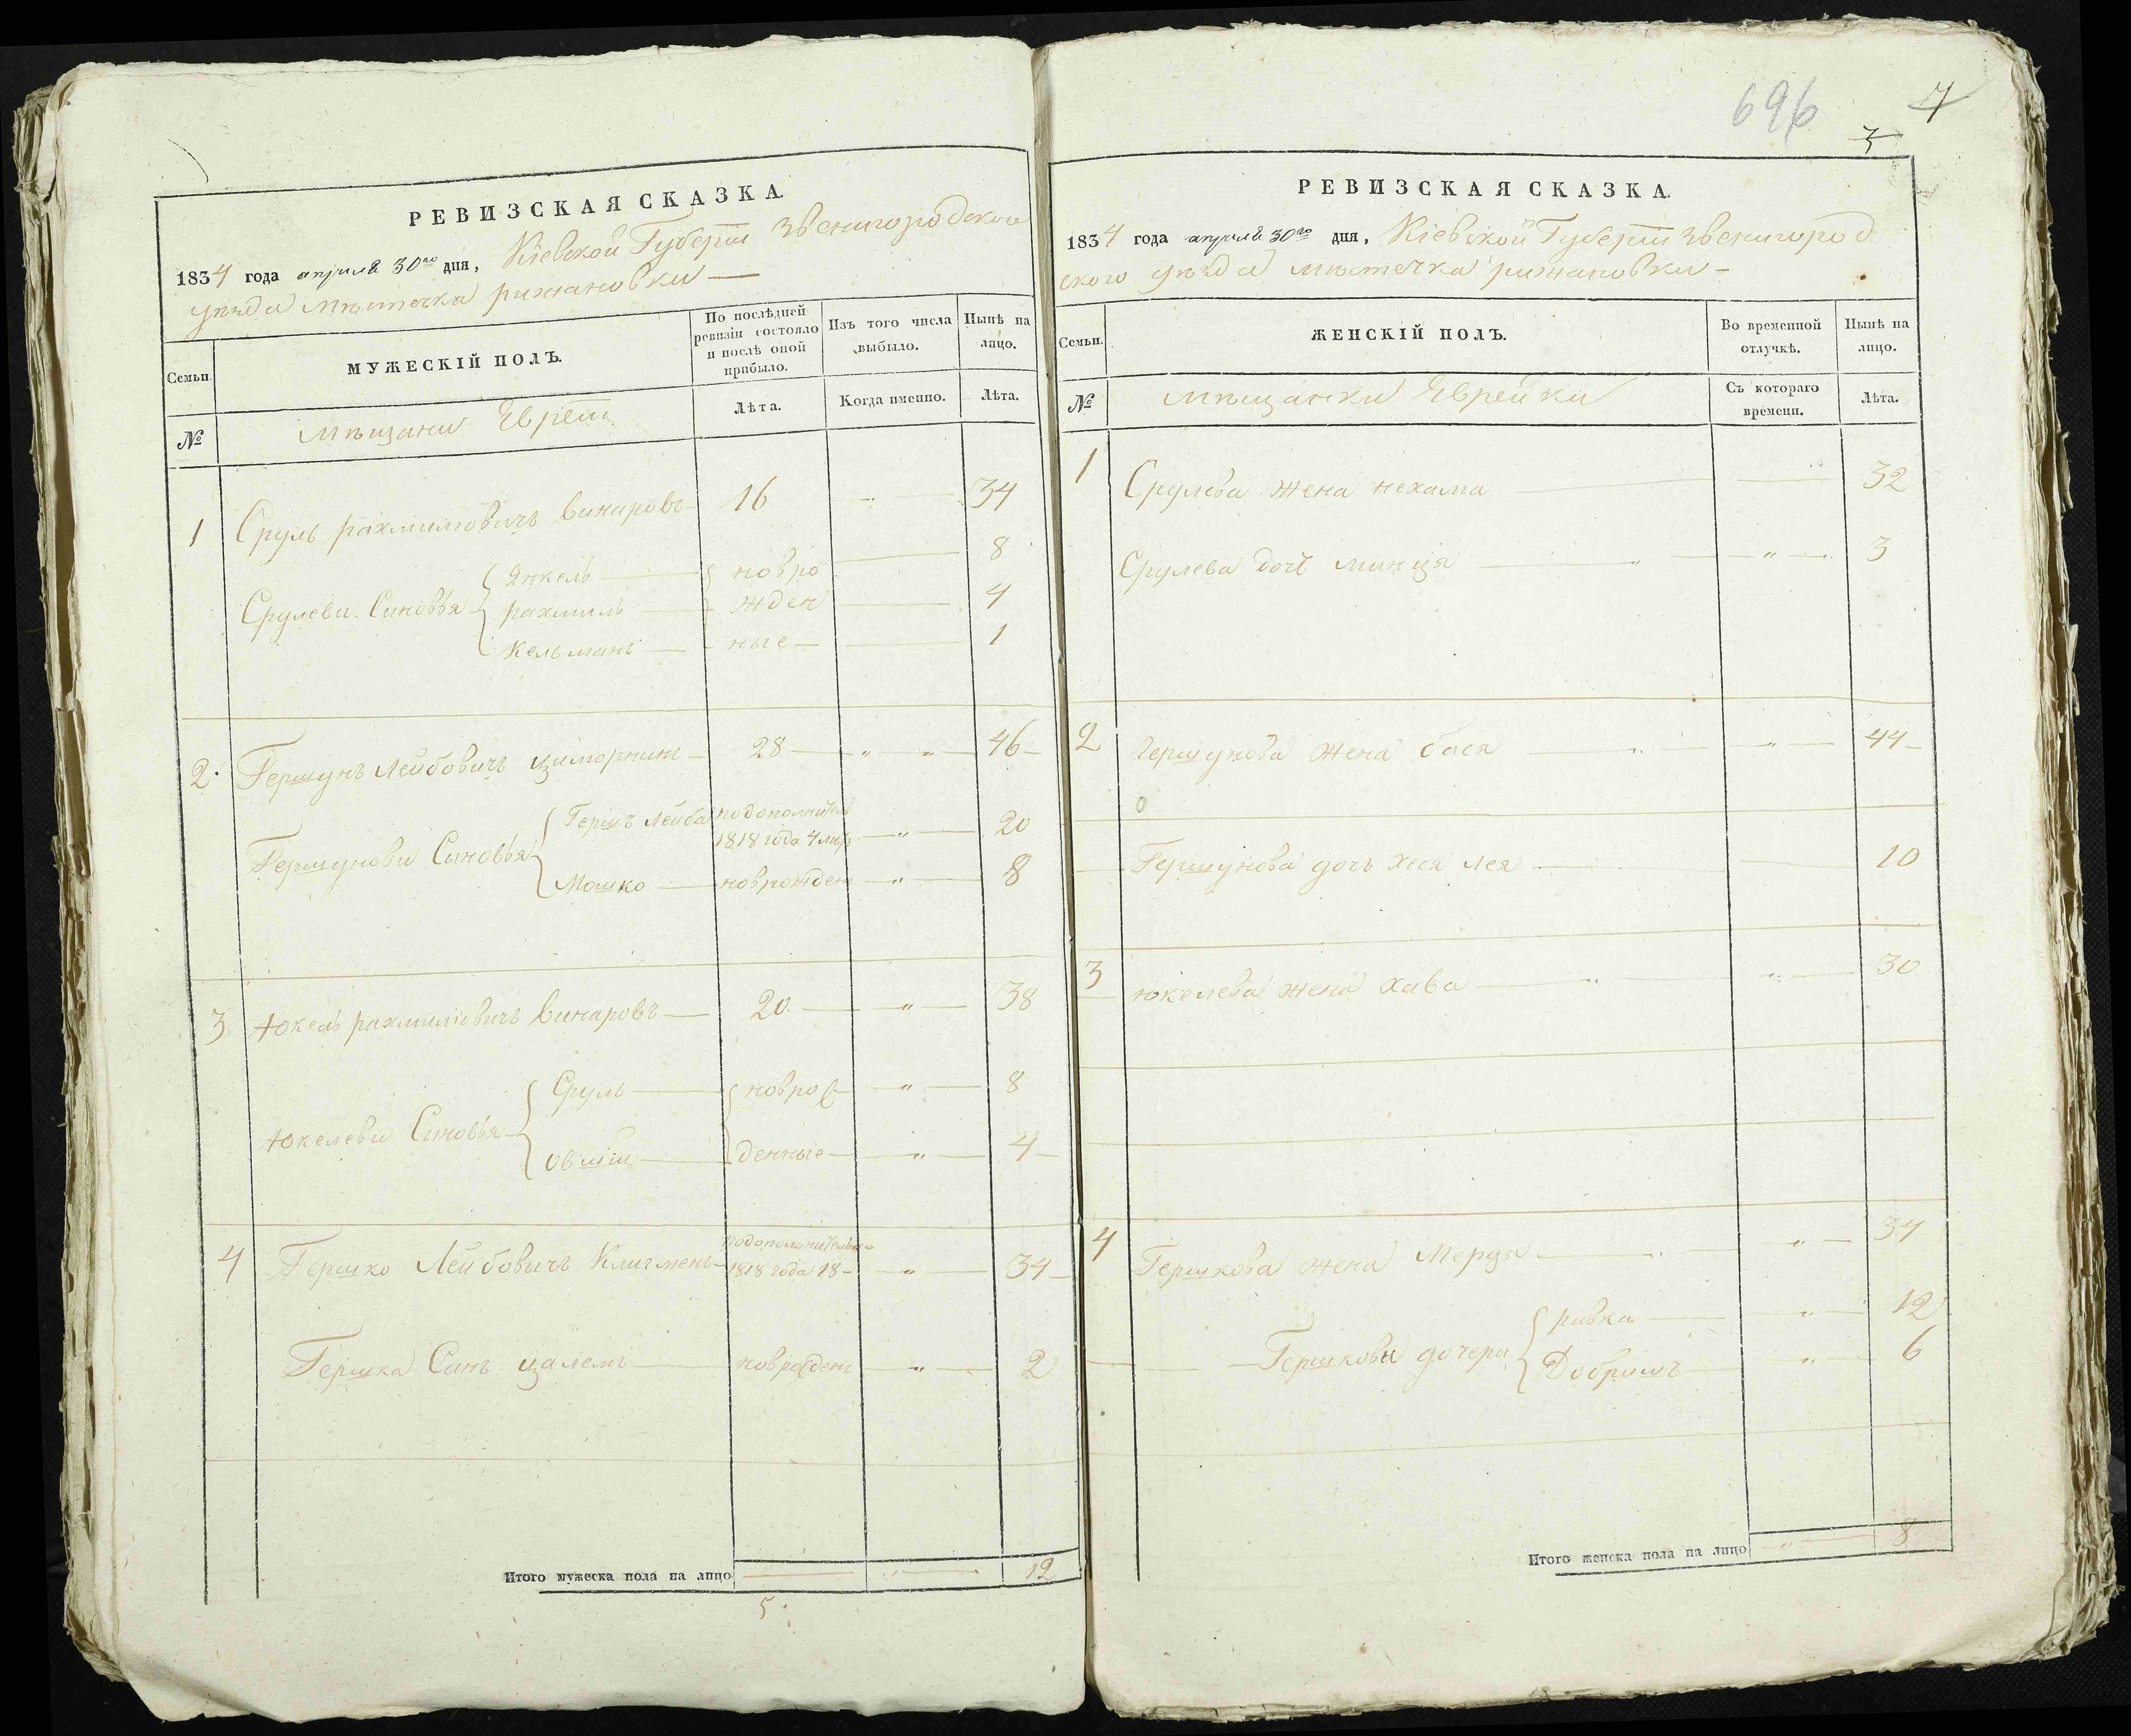 РЕВИЗСКАЯ СКАЗКА
1834 года апреля 30го дня, Кіевской Губерніи Звенигородского
уезда местечка рижановки —
Семьи.
МУЖЕСКІЙ ПОЛЪ.
По послѣдней ревизіи состояло и послѣ оной прибыло.
Изъ того числа выбыло.
Нынѣ на лицо.
№
мещани Евреи
Лѣта.
Когда именно.
Лѣта.
1 Сруль рахмиліовичъ винаровъ 16 34
Срулеви Синовья Янкель новро 8
рахмиль жден 4
Кельманъ ные 1
2 Гершунъ Лейбовичъ 28 46
Гершунови Синовья Гершъ Лейба по дополнитель 1818 года 4 20
Мошко новрожден 8
3 Юкель рахмиліовичъ винаровъ 20 38
Юкелеви Синовья Сруль новрож 8
Овшій денные 4
4 Гершко Лейбовичъ Клигменъ по дополнительн 1818 года 18 34
Гершка Синъ цалемъ новрожден 2
Итого мужеска пола на лицо 12
5.
696
7
3
РЕВИЗСКАЯ СКАЗКА.
1834 года апреля 30го дня, Кіевской Губерніи Звенигород
ского уезда местечка рижановки —
Семьи.
ЖЕНСКІЙ ПОЛЪ.
Во временной отлучкѣ.
Нынѣ на лицо.
№
мещанки Еврейки
Съ котораго времени.
Лѣта.
1 Срулева жена нехама 32
Срулева дочь минця 3
2 Гершунова жена бася 44
Гершунова дочь хеся лея 10
3 юкелева жена хава 30
4 Гершкова жена Мерця 34
Гершкови дочери ривка 12
Добришъ 6
Итого женска пола на лицо 8